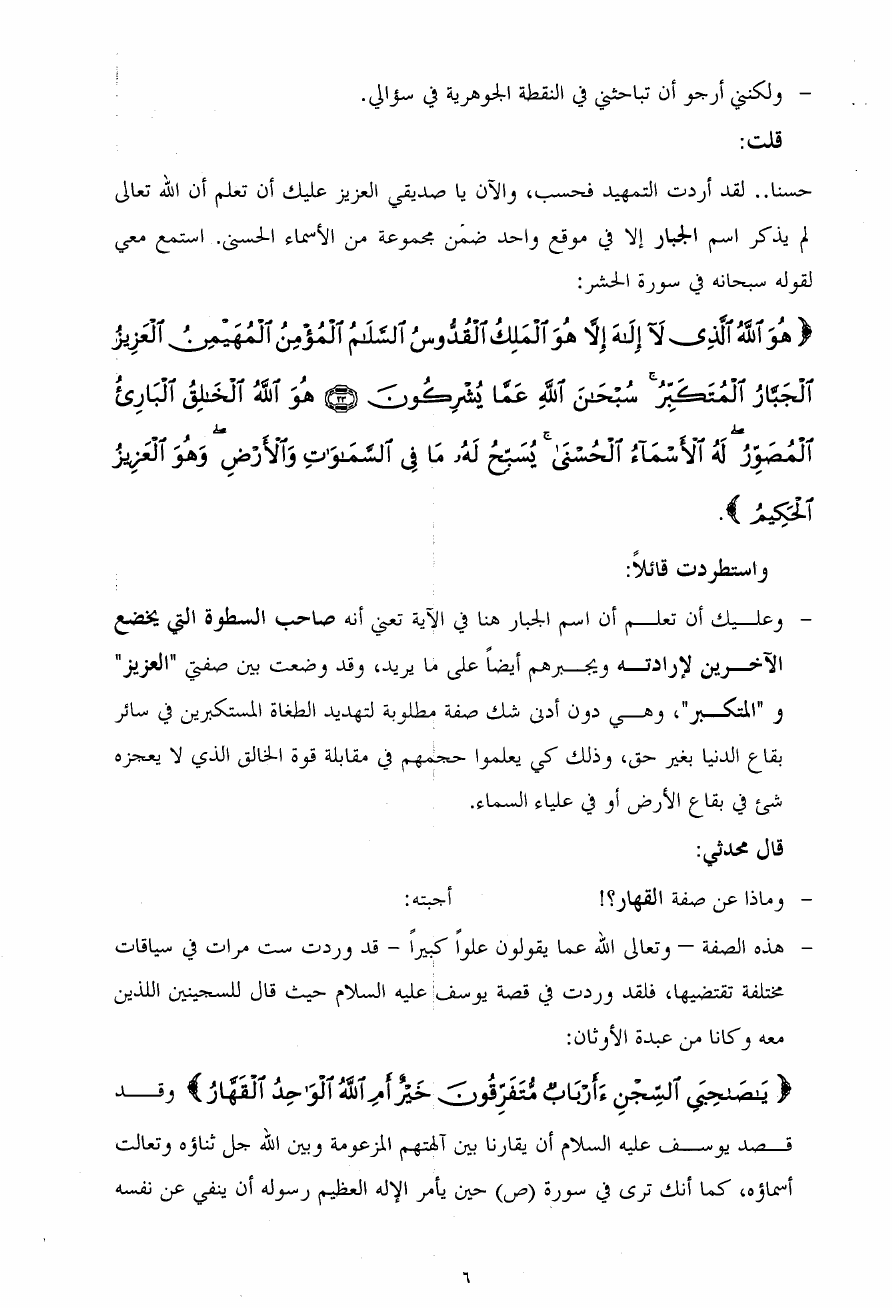 - ولكنني أرجو أن تباحثني في النقطة الجوهرية في سؤالي.
قلت:
حسنا.. لقد أردت التمهيد فحسب، والآن يا صديقي العزيز عليك أن تعلم أن الله تعالى
لم يذكر اسم الجبار إلا في موقع واحد ضمن مجموعة من الأسماء الحسنى. استمع معي
لقوله سبحانه في سورة الحشر:
﴿ هُوَ ٱللَّهُ ٱلَّذِى لَآ إِلَـٰهَ إِلَّا هُوَ ٱلْمَلِكُ ٱلْقُدُّوسُ ٱلسَّلَـٰمُ ٱلْمُؤْمِنُ ٱلْمُهَيْمِنُ ٱلْعَزِيزُ
ٱلْجَبَّارُ ٱلْمُتَكَبِّرُ ۚ سُبْحَـٰنَ ٱللَّهِ عَمَّا يُشْرِكُونَ ﴿٢٣﴾ هُوَ ٱللَّهُ ٱلْخَـٰلِقُ ٱلْبَارِئُ
ٱلْمُصَوِّرُ ۖ لَهُ ٱلْأَسْمَآءُ ٱلْحُسْنَىٰ ۚ يُسَبِّحُ لَهُۥ مَا فِى ٱلسَّمَـٰوَٰتِ وَٱلْأَرْضِ ۖ وَهُوَ ٱلْعَزِيزُ
ٱلْحَكِيمُ ﴾.
واستطردت قائلاً:
- وعليك أن تعلم أن اسم الجبار هنا في الآية تعني أنه صاحب السطوة التي يخضع
الآخرين لإرادته ويجبرهم أيضاً على ما يريد، وقد وضعت بين صفتي "العزيز"
و "المتكبر"، وهي دون أدنى شك صفة مطلوبة لتهديد الطغاة المستكبرين في سائر
بقاع الدنيا بغير حق، وذلك كي يعلموا حجمهم في مقابلة قوة الخالق الذي لا يعجزه
شئ في بقاع الأرض أو في علياء السماء.
قال محدثي:
- وماذا عن صفة القهار؟! أجبته:
- هذه الصفة – وتعالى الله عما يقولون علواً كبيراً – قد وردت ست مرات في سياقات
مختلفة تقتضيها، فلقد وردت في قصة يوسف عليه السلام حيث قال للسجينين اللذين
معه وكانا من عبدة الأوثان:
﴿ يَـٰصَـٰحِبَىِ ٱلسِّجْنِ ءَأَرْبَابٌ مُّتَفَرِّقُونَ خَيْرٌ أَمِ ٱللَّهُ ٱلْوَٰحِدُ ٱلْقَهَّارُ ﴾ وقد
قصد يوسف عليه السلام أن يقارنا بين آلهتهم المزعومة وبين الله جل ثناؤه وتعالت
أسماؤه، كما أنك ترى في سورة (ص) حين يأمر الإله العظيم رسوله أن ينفي عن نفسه
٦